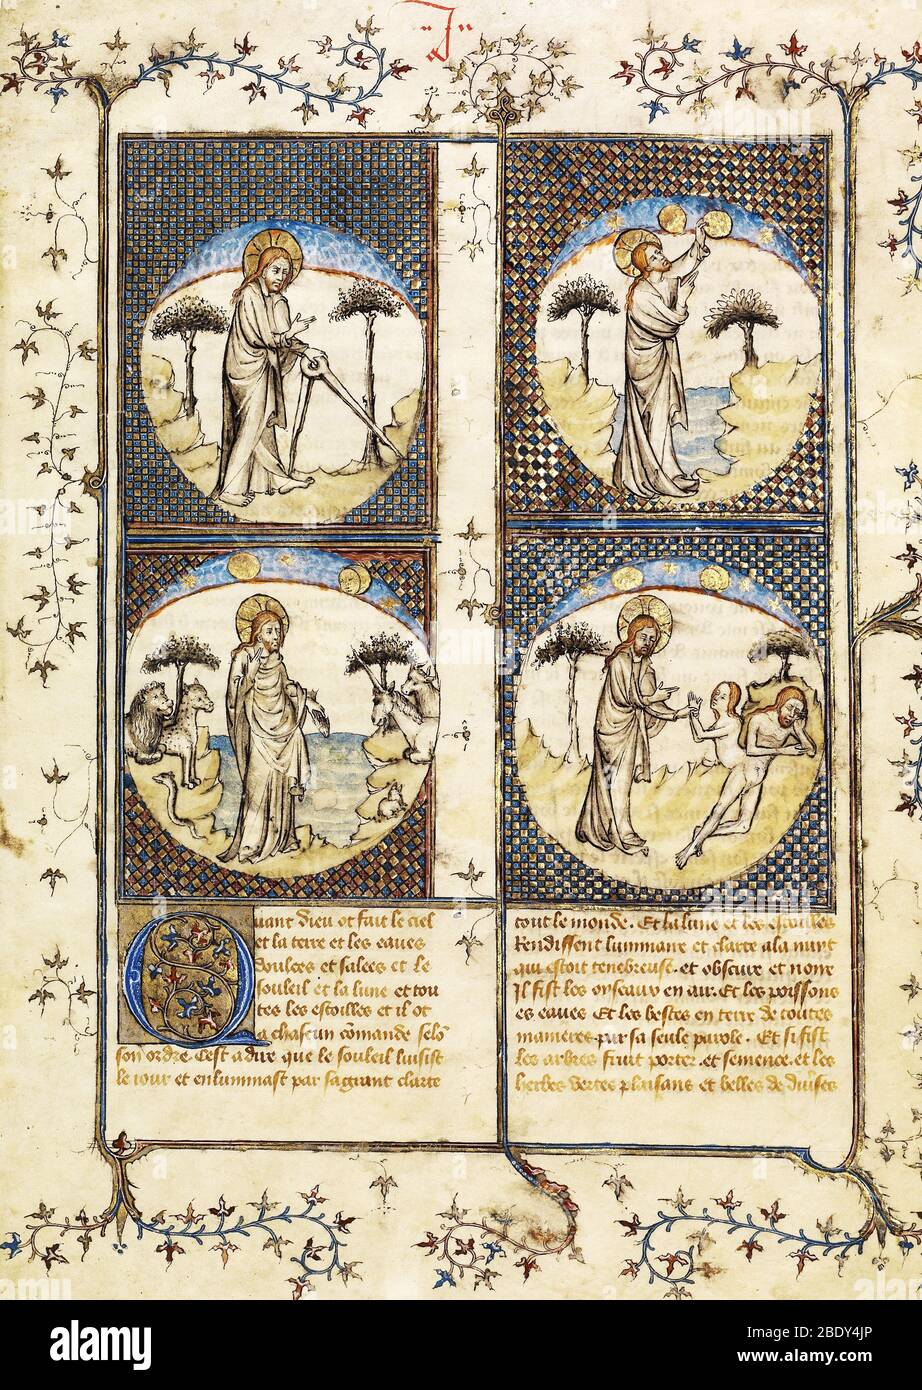 J
Quant dieu ot fait le ciel
et la terre et les eaues
doulces et salees et le
souleil et la lune et tou
tes les estoilles et il ot
a chascun cōmande selō
son ordre. Cest a dire que le souleil luisist
le iour et enluminast par sa grant clarte
tout le monde. Et la lune et les estoilles
Rendissent luminaire et clarte a la nuyt
qui estoit tenebreuse. et obscure et noire
Il fist les oyseaux en air. Et les poissons
es eaues Et les bestes en terre de toutes
manieres. par sa seule parole. Et si fist
les arbres fruit porter. et semence. et les
herbes vertes plaisans et belles de diu'ses
alamy
Image ID: 2BDY4JP
www.alamy.com